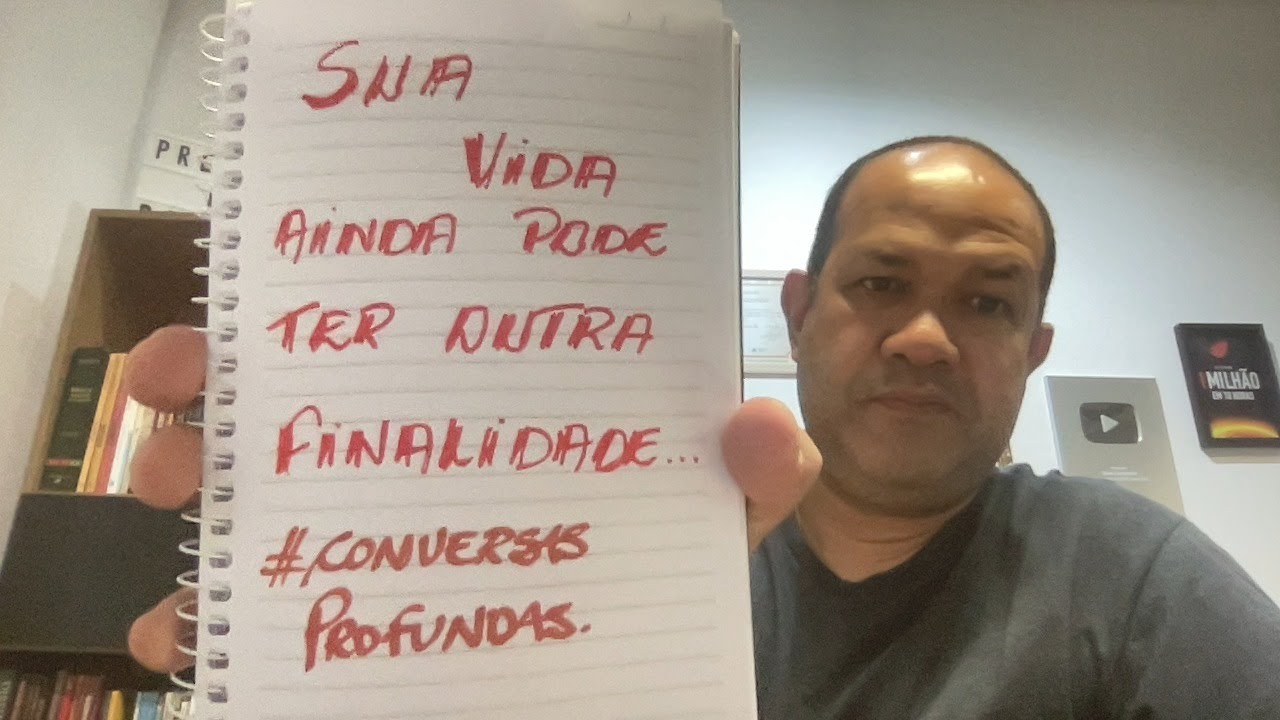 SUA
ViDA
AiNDA PODE
TER OUTRA
FiNALiDADE...
#CONVERSAS
PROFUNDAS.
PRE
MILHÃO